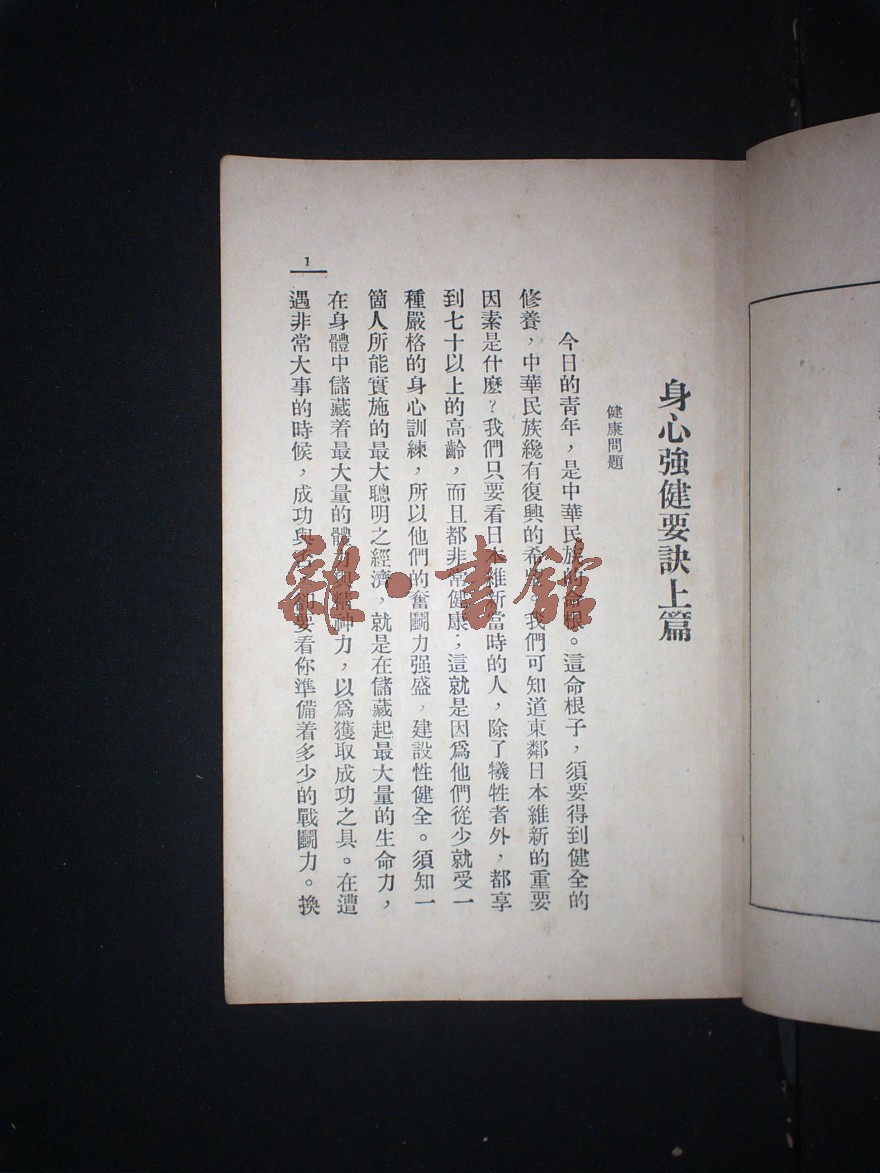 身心強健要訣上篇
健康問題
今日的靑年，是中華民族的命根。這命根子，須要得到健全的
修養，中華民族纔有復興的希。我們可知道東鄰日本維新的重要
因素是什麼？我們只要看日本維新當時的人，除了犧牲者外，都享
到七十以上的高齡，而且都非常健康；這就是因爲他們從少就受一
種嚴格的身心訓練，所以他們的奮鬭力强盛，建設性健全。須知一
箇人所能實施的最大聰明之經濟，就是在儲藏起最大量的生命力，
在身體中儲藏着最大量的體力與精神力，以爲獲取成功之具。在遭
遇非常大事的時候，成功與否，卻要看你準備着多少的戰鬭力。換
1
雜·書館